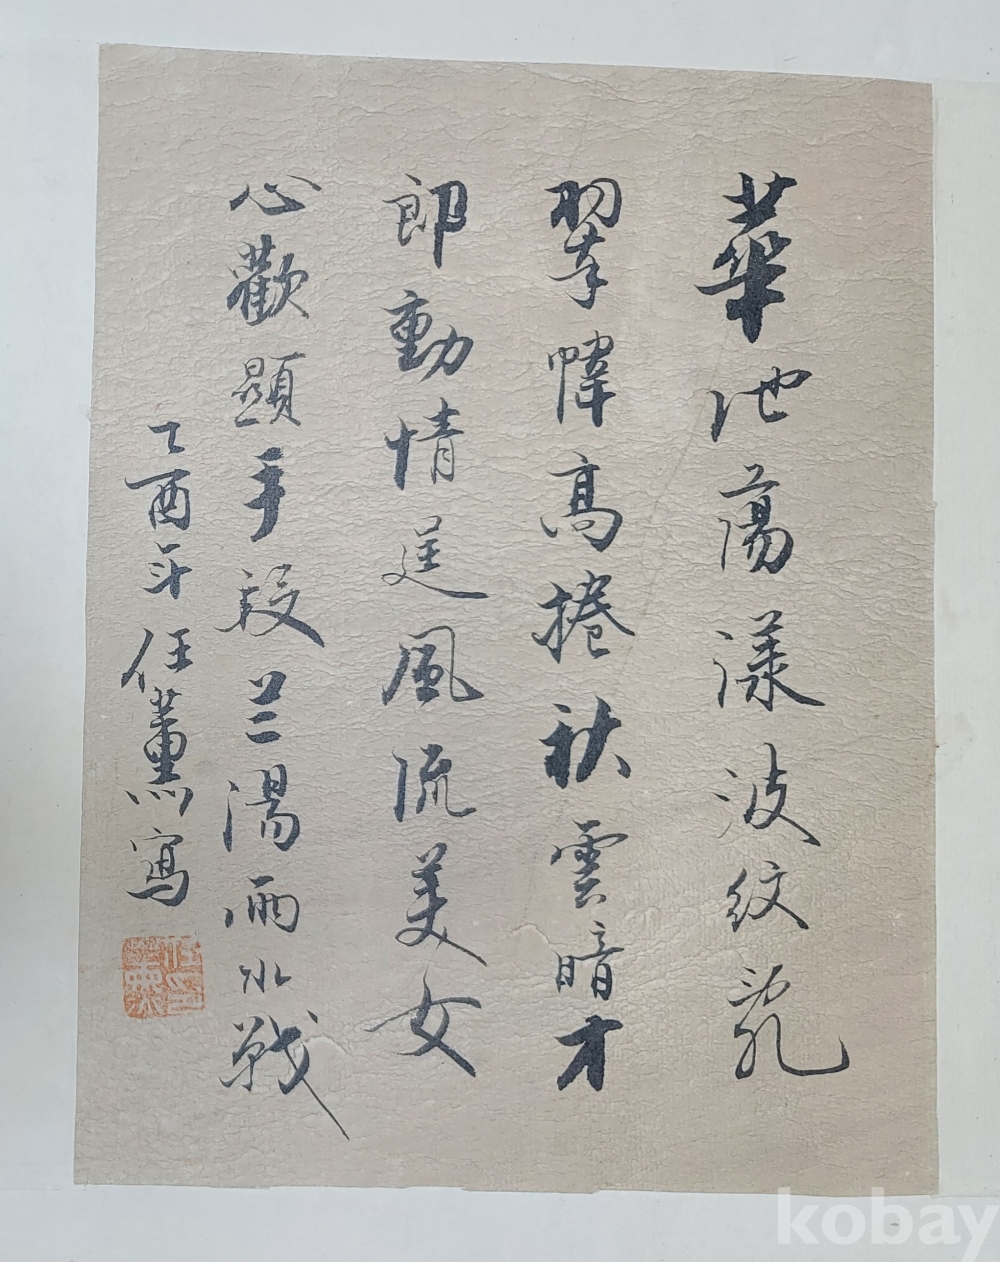 華池蕩漾波紋亂
翠幃高捲秋雲暗才
郎動情逞風流美女
心歡顯手段蘭湯雨水戰
乙酉年任薰寫
kobay